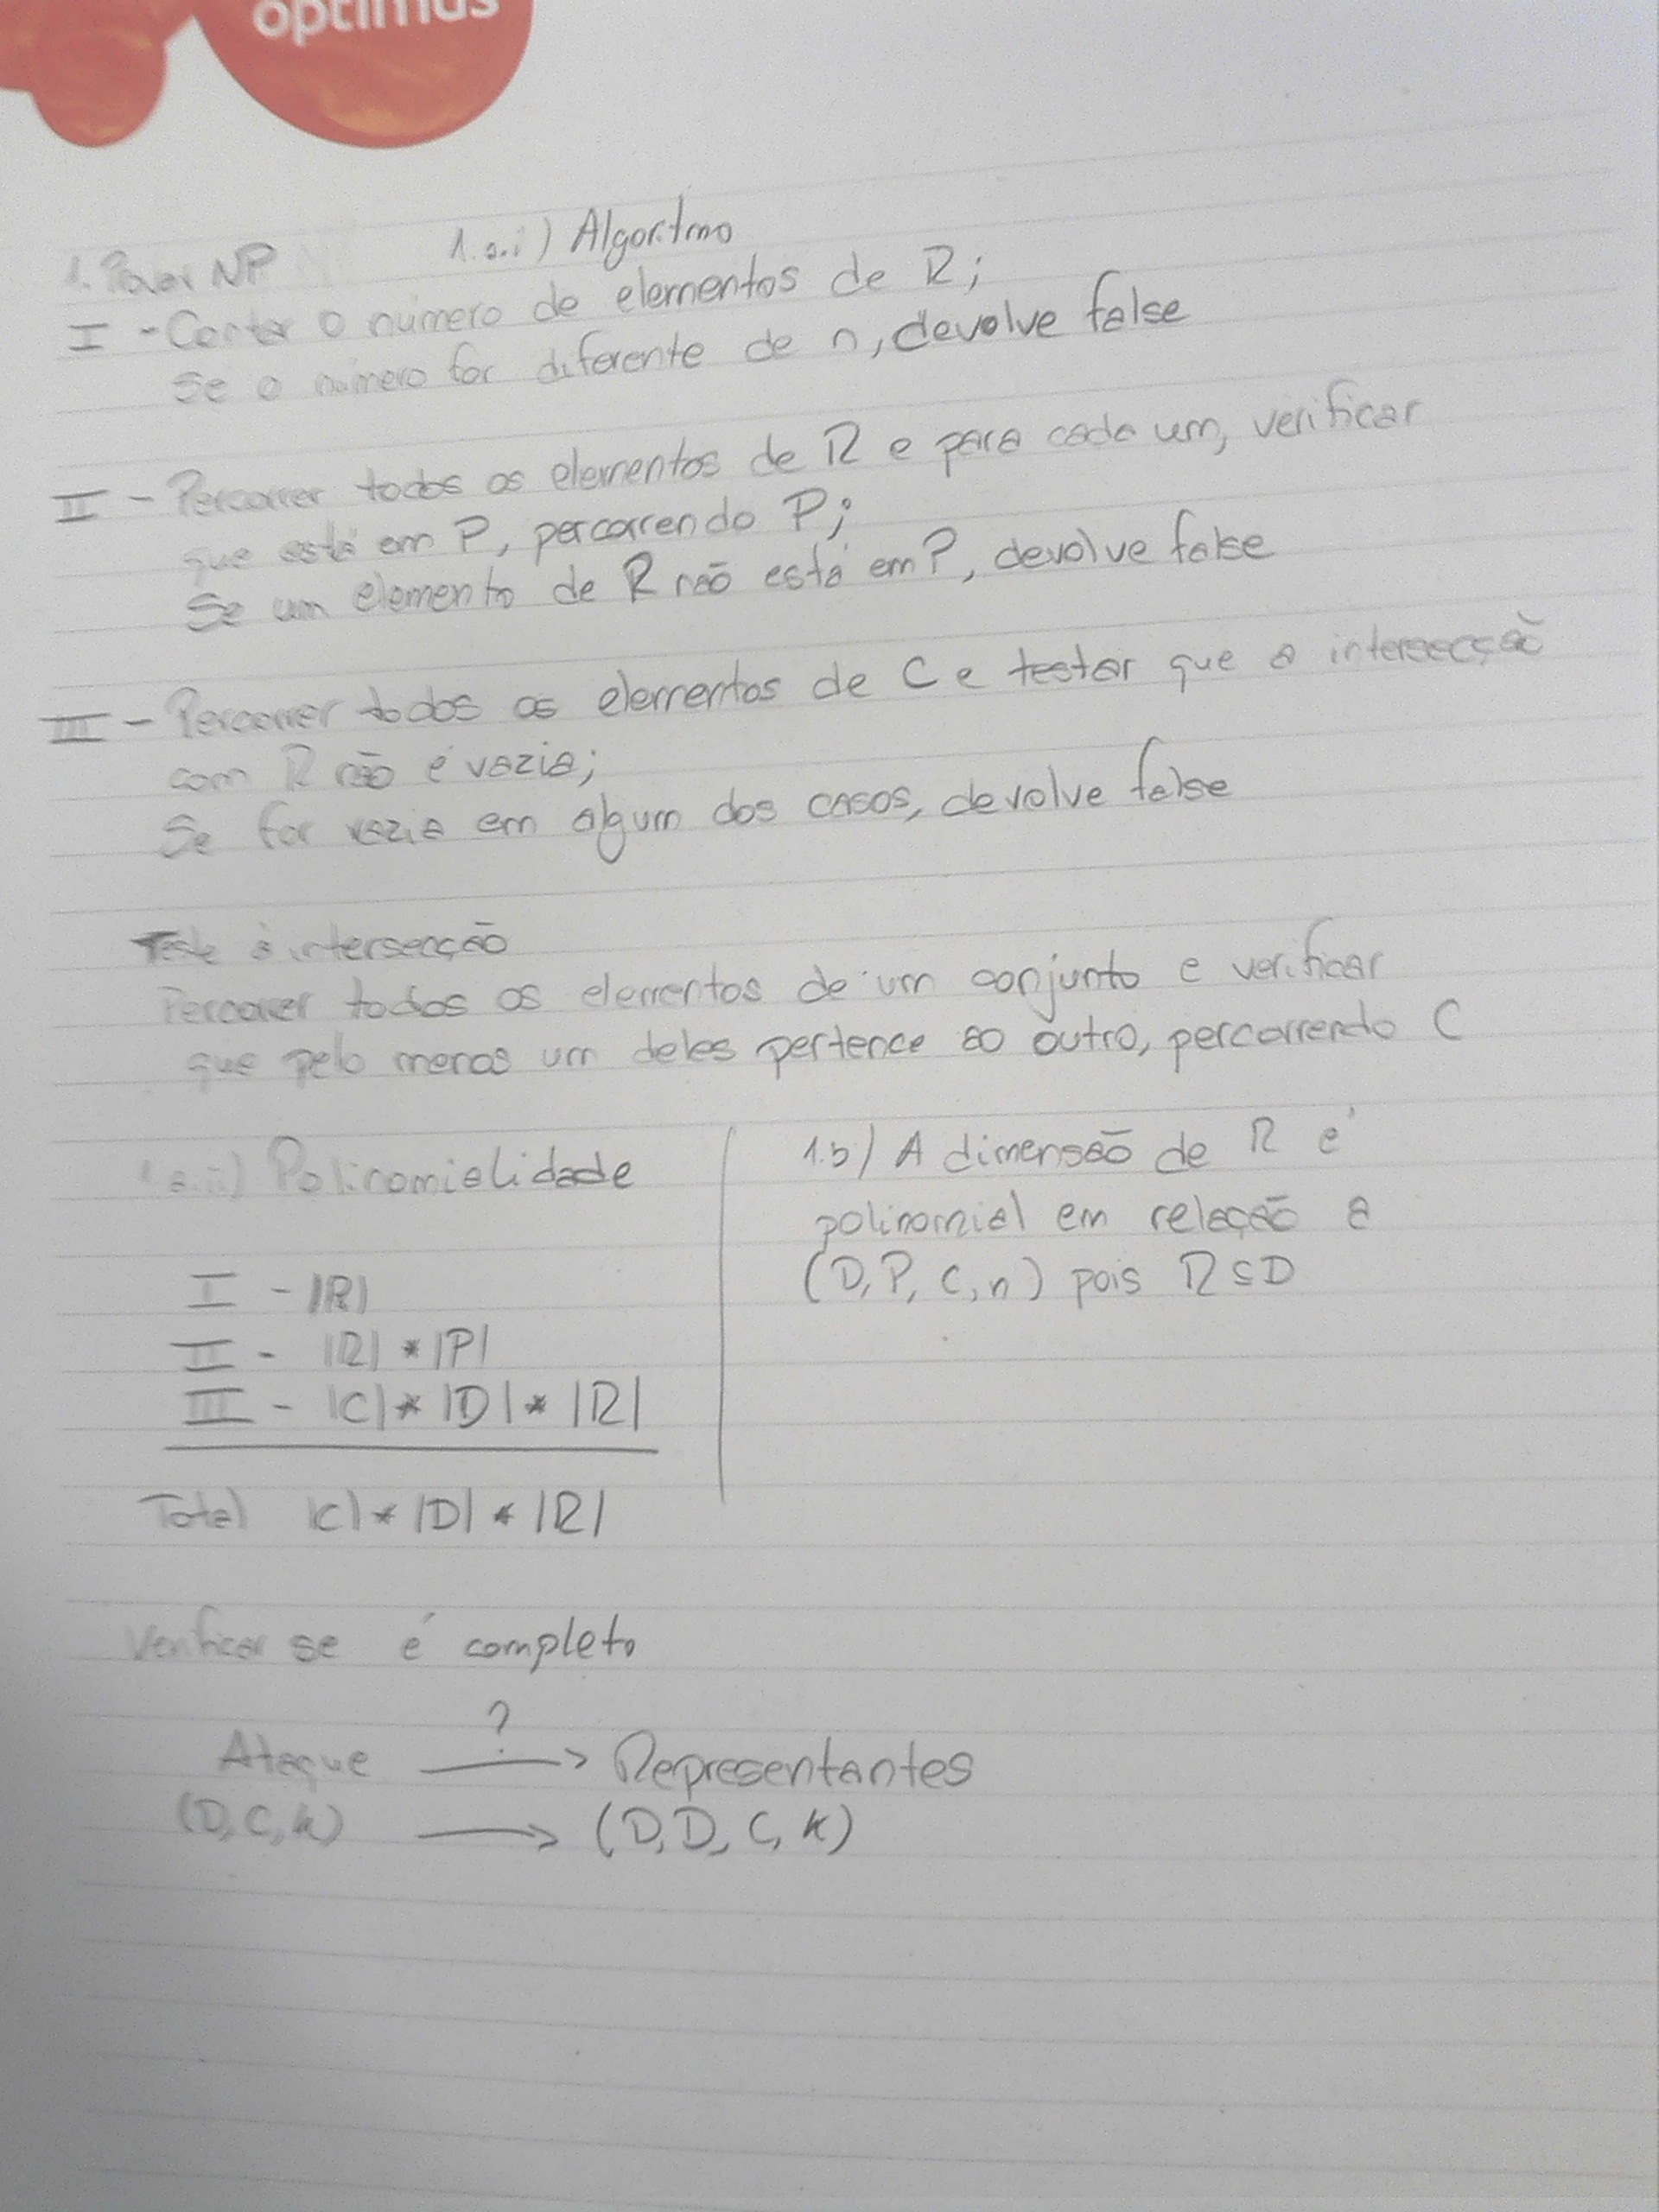 optimus
1. Provar NP
1.a.i) Algoritmo
I - Contar o número de elementos de R;
Se o número for diferente de n, devolve false
II - Percorrer todos os elementos de R e para cada um, verificar
que está em P, percorrendo P;
Se um elemento de R não está em P, devolve false
III - Percorrer todos os elementos de C e testar que a intersecção
com R não é vazia;
Se for vazia em algum dos casos, devolve false
Teste à intersecção
Percorrer todos os elementos de um conjunto e verificar
que pelo menos um deles pertence ao outro, percorrendo C
1.a.ii) Polinomialidade
I - |R|
II - |R| * |P|
III - |C| * |D| * |R|
Total |C| * |D| * |R|
1.b) A dimensão de R é
polinomial em relação a
(D, P, C, n) pois R ⊆ D
Verificar se é completo
?
Ataque → Representantes
(D, C, k) → (D, D, C, k)